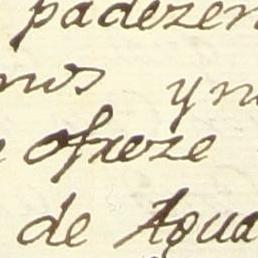 padezen
nos yn
ofreze
de Agua